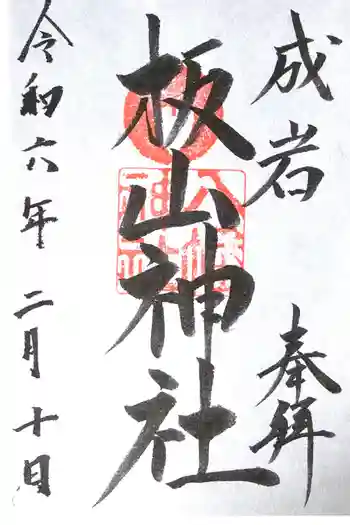 成岩 奉拝
板山神社
令和六年 二月十日